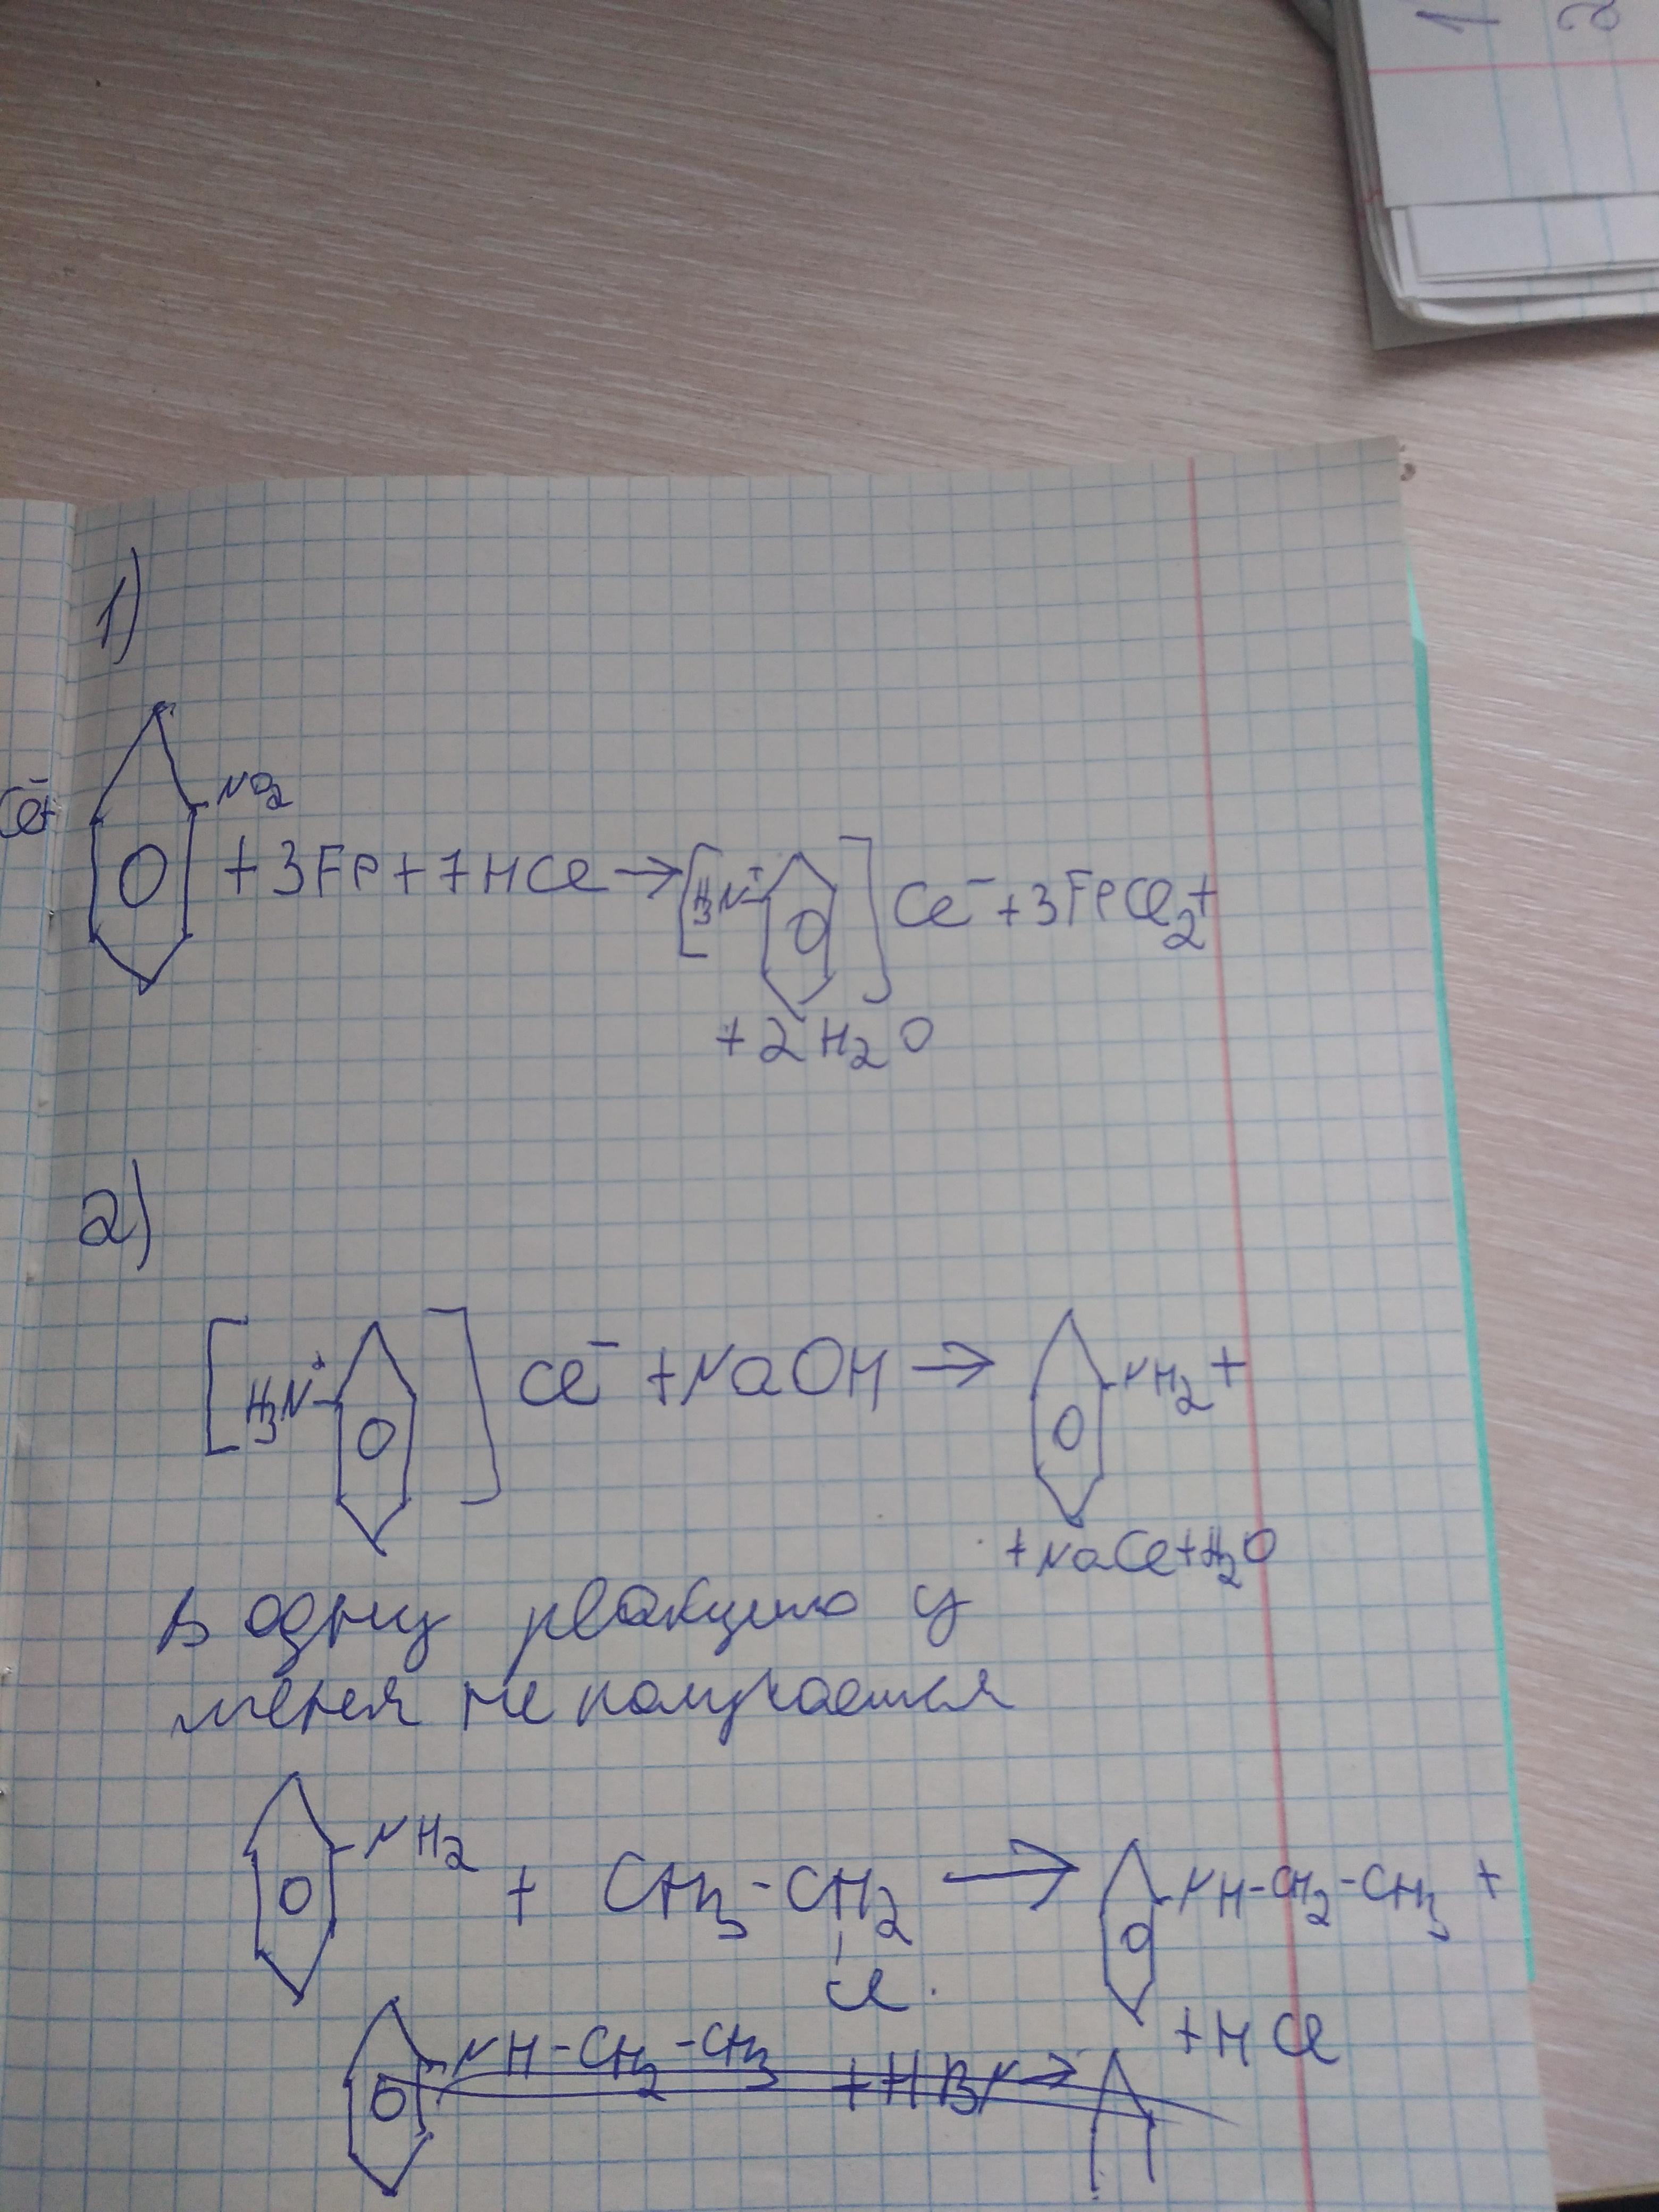 1
2
1)
Cl⁻+
NO₂
+ 3Fe + 7HCl → [H₃N⁺- ] Cl⁻ + 3FeCl₂ +
+ 2H₂O
2)
[H₃N⁺- ] Cl⁻ + NaOH → -NH₂ +
+ NaCl + H₂O
В одну реакцию у
меня не получается
-NH₂ + CH₃-CH₂ → -NH-CH₂-CH₃ +
Cl
+ HCl
-NH-CH₂-CH₃ + HBr →